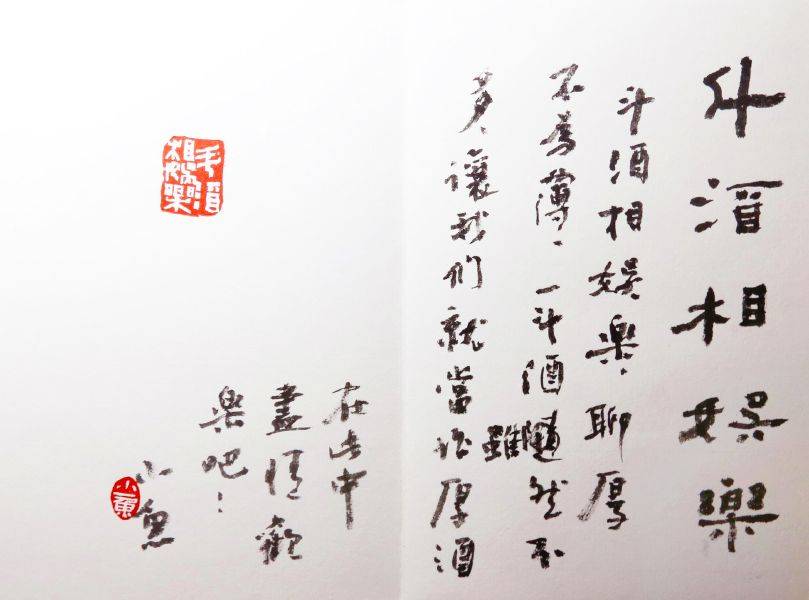 斗酒相娛樂
斗酒相娛樂聊厚
不為薄、一斗酒雖然不
多、讓我們就當作厚酒
在此中
盡情歡
樂吧！
小魚
斗酒相娛樂
小魚